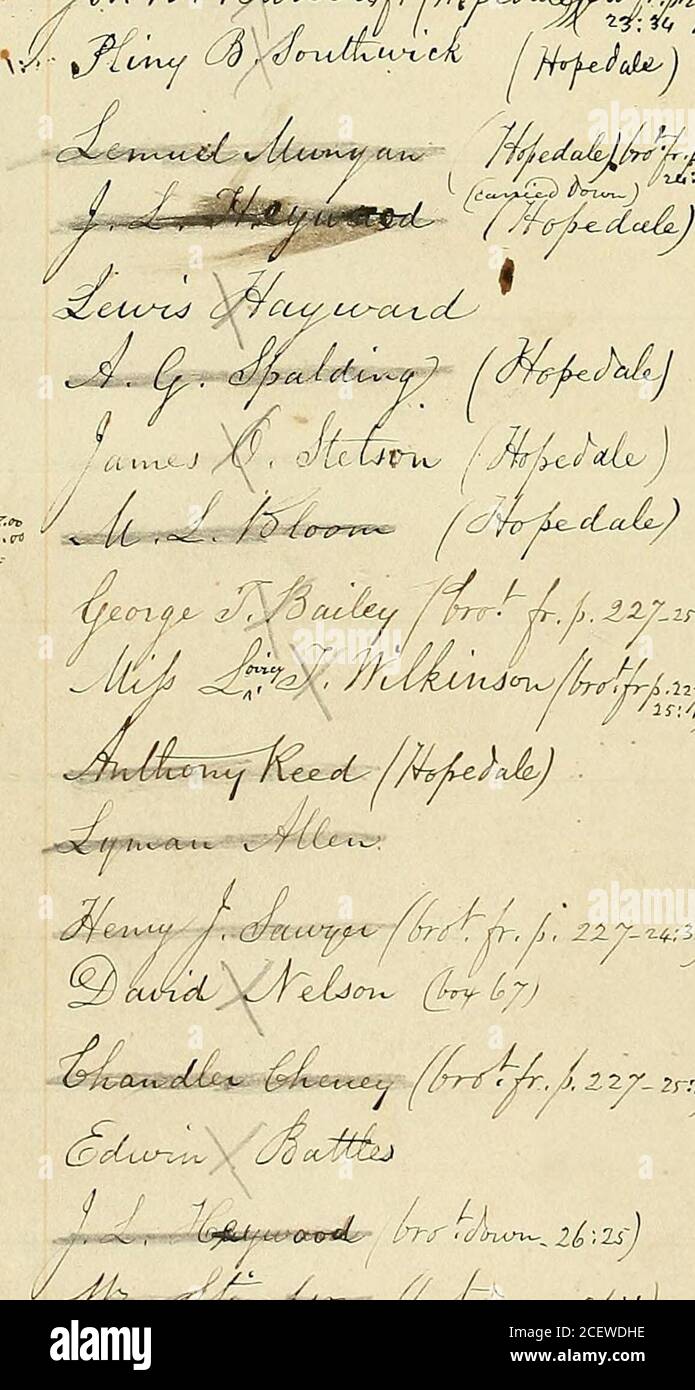 23:34
Pliny B. Southwick (Hopedale)
Lemuel Munyan (Hopedale) (bro't fr. p.
24:
(carried down)
J. L. Heywood (Hopedale)
Lewis Hayward
A. G. Spalding (Hopedale)
James O. Stetson (Hopedale)
M. L. Bloom (Hopedale)
George T. Bailey (bro't fr. p. 227-25
Miss Lovicy T. Wilkinson (bro't fr p. 22
25:1
Anthony Reed (Hopedale)
Lyman Allen.
Henry J. Sawyer (bro't. fr. p. 227-24:3
David Nelson (box 67)
Chandler Cheney (bro't fr. p. 227-25:
Edwin Battles
J. L. Heywood (bro't down-26:25)
alamy
Image ID: 2CEWDHE
www.alamy.com